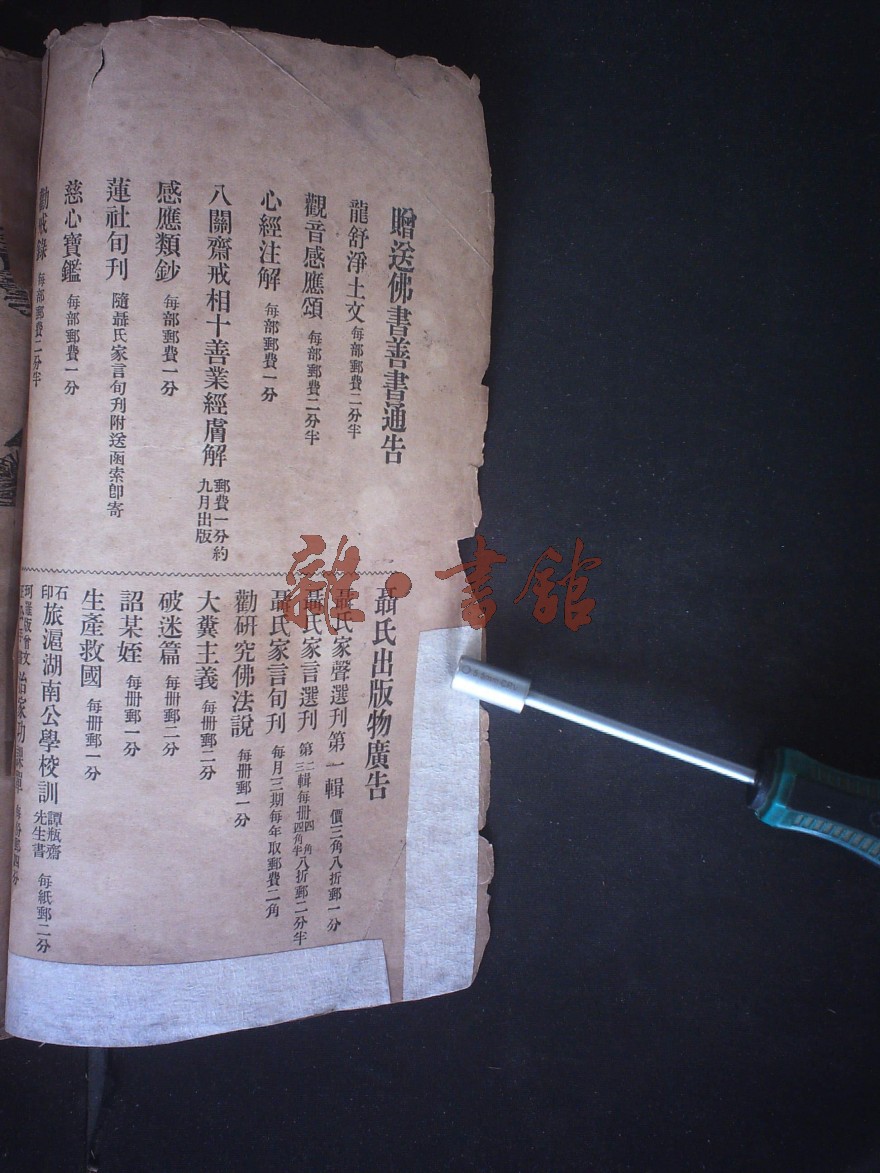 贈送佛書善書通告
龍舒淨土文 每部郵費二分半
觀音感應頌 每部郵費二分半
心經注解 每部郵費一分
八關齋戒相十善業經膚解 郵費一分約九月出版
感應類鈔 每部郵費一分
蓮社旬刊 隨聶氏家言旬刊附送函索卽寄
慈心寶鑑 每部郵費一分
勸戒錄 每部郵費二分半
聶氏出版物廣告
聶氏家聲選刊第一輯 價三角八折郵一分
聶氏家言選刊 第二三輯每冊四角四角半八折郵二分半
聶氏家言旬刊 每月三期每年取郵費二角
勸研究佛法說 每冊郵一分
大糞主義 每冊郵二分
破迷篇 每冊郵二分
詔某姪 每冊郵一分
生產救國 每冊郵一分
石印旅滬湖南公學校訓 譚瓶齋先生書 每紙郵二分
治家功課單
雜·書館